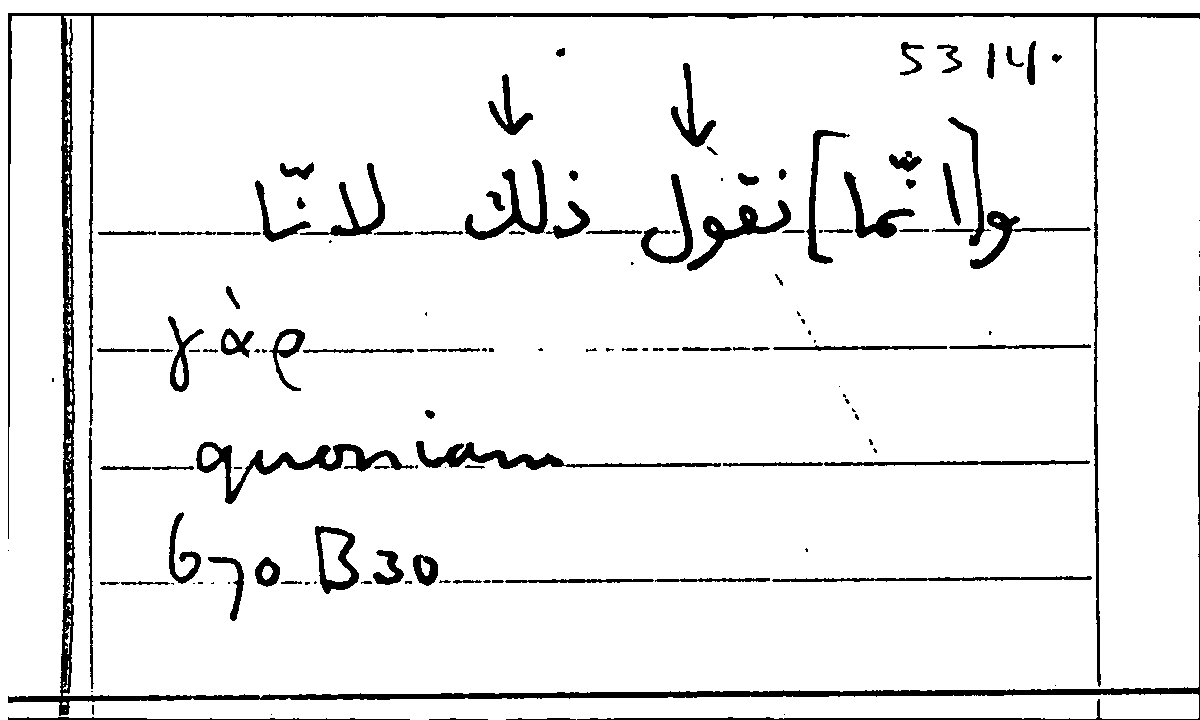 53 14.
و[انّما] نقول ذلك لانّا
γὰρ
quoniam
670 B 30